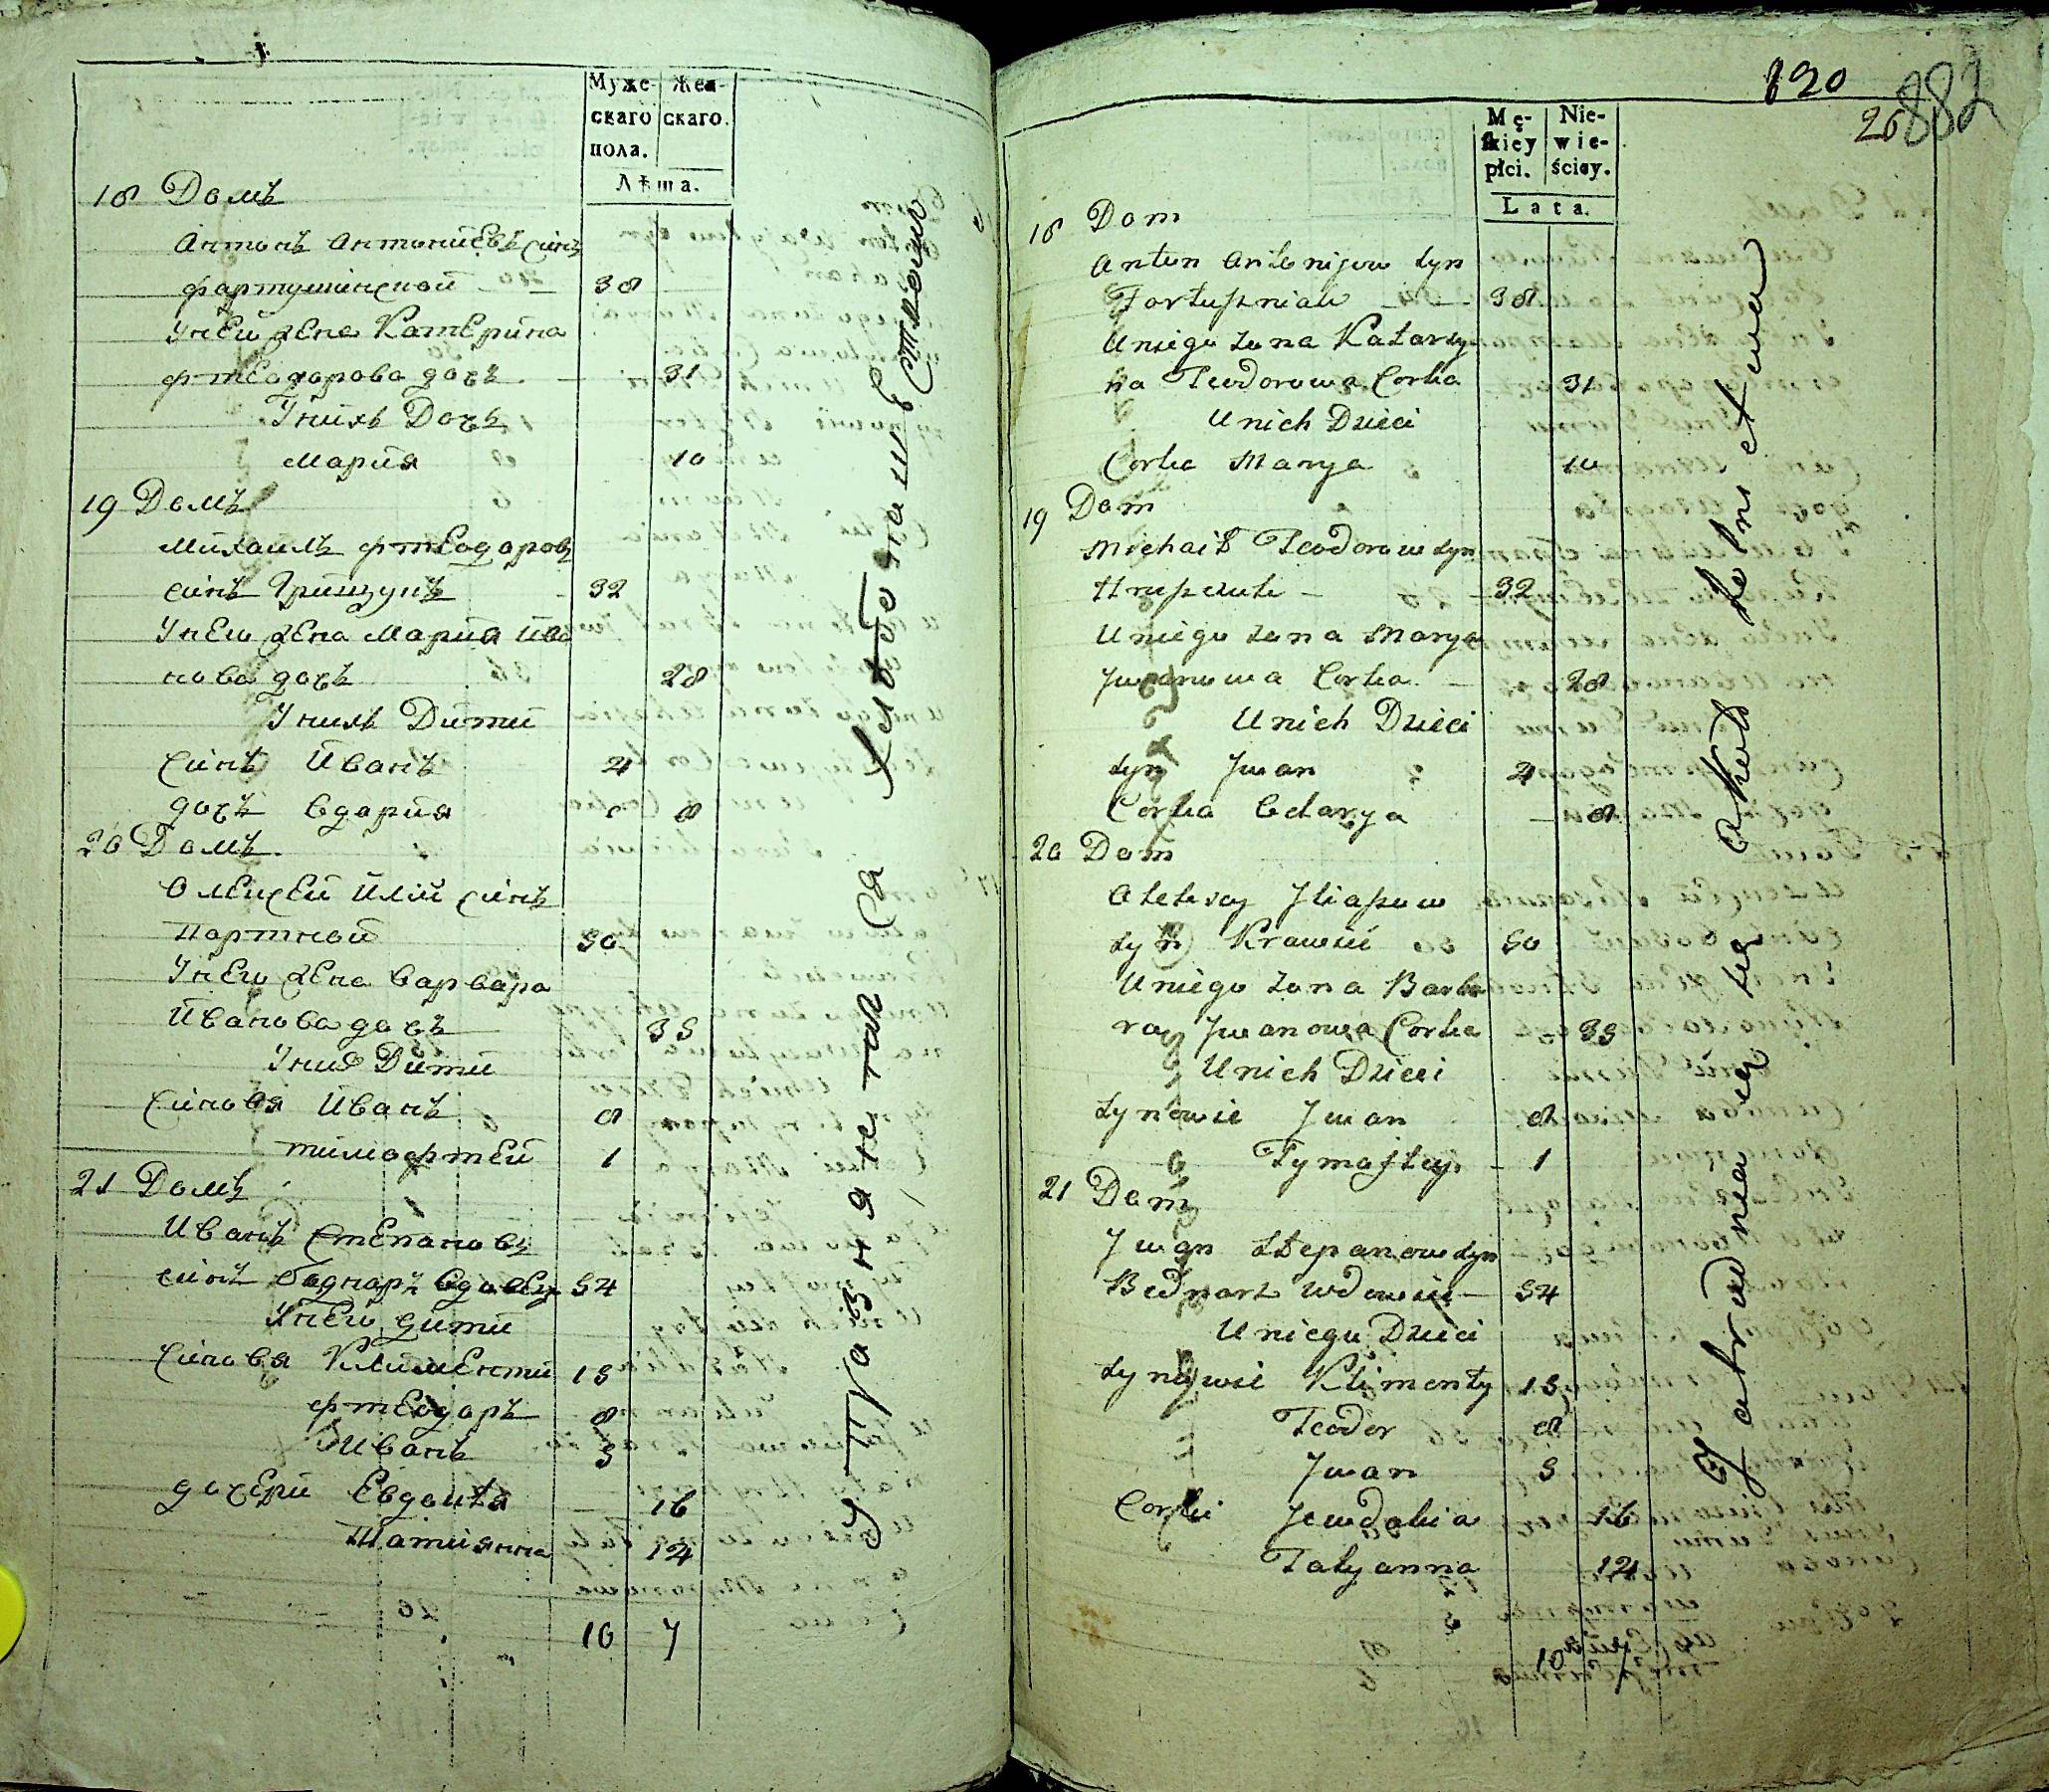 Муже-
скаго
пола.
Жен-
скаго.
Лѣта.
18 Домъ
Антонъ Антонiевъ синъ
фартушинской 38
Унего жена Катерина
фтеодорова дочъ 31
Унихъ Дочъ
Мария 10
19 Домъ
Михаилъ фтеодоровъ
синъ Грищукъ 32
Унего жена Мария Ива
нова дочъ 28
Унихъ Дити
Синъ Иванъ 4
дочъ Вдария 8
20 Домъ
Олексей Илiй синъ
Портной 50
Унего жена Варвара
Иванова дочъ 35
Унихъ Дити
Синовя Иванъ 8
Тимофтей 1
21 Домъ
Иванъ Степановъ
синъ Боднаръ вдовец 54
Унего дити
Синовя Климентий 15
фтеодоръ 8
Иванъ 5
дочери Евдокия 16
Татиянна 12
10 7
120
26 882
Mę-
skiey
płci.
Nie-
wie-
ściey.
Lata.
18 Dom
Anton Antonijow syn
Fortuszniak 38
Uniego żona Katarzy
na Teodorowa Corka 31
Unich Dzieci
Corka Marya 10
19 Dom
Michaił Teodorow syn
Hryszuk 32
Uniego żona Marya
Jwanowa Corka 28
Unich Dzieci
syn Jwan 4
Corka Odarya 8
20 Dom
Alexsey Jliaszow
syn Krawiec 50
Uniego żona Barba
ra Jwanowa Corka 35
Unich Dzieci
synowie Jwan 8
Tymoftey 1
21 Dom
Jwan Stepanow syn
Bednarz wdowiec 54
Uniego Dzieci
synowie Klimenty 15
Teodor 8
Jwan 5
Corki Jewdokia 16
Tatyanna 12
10 7